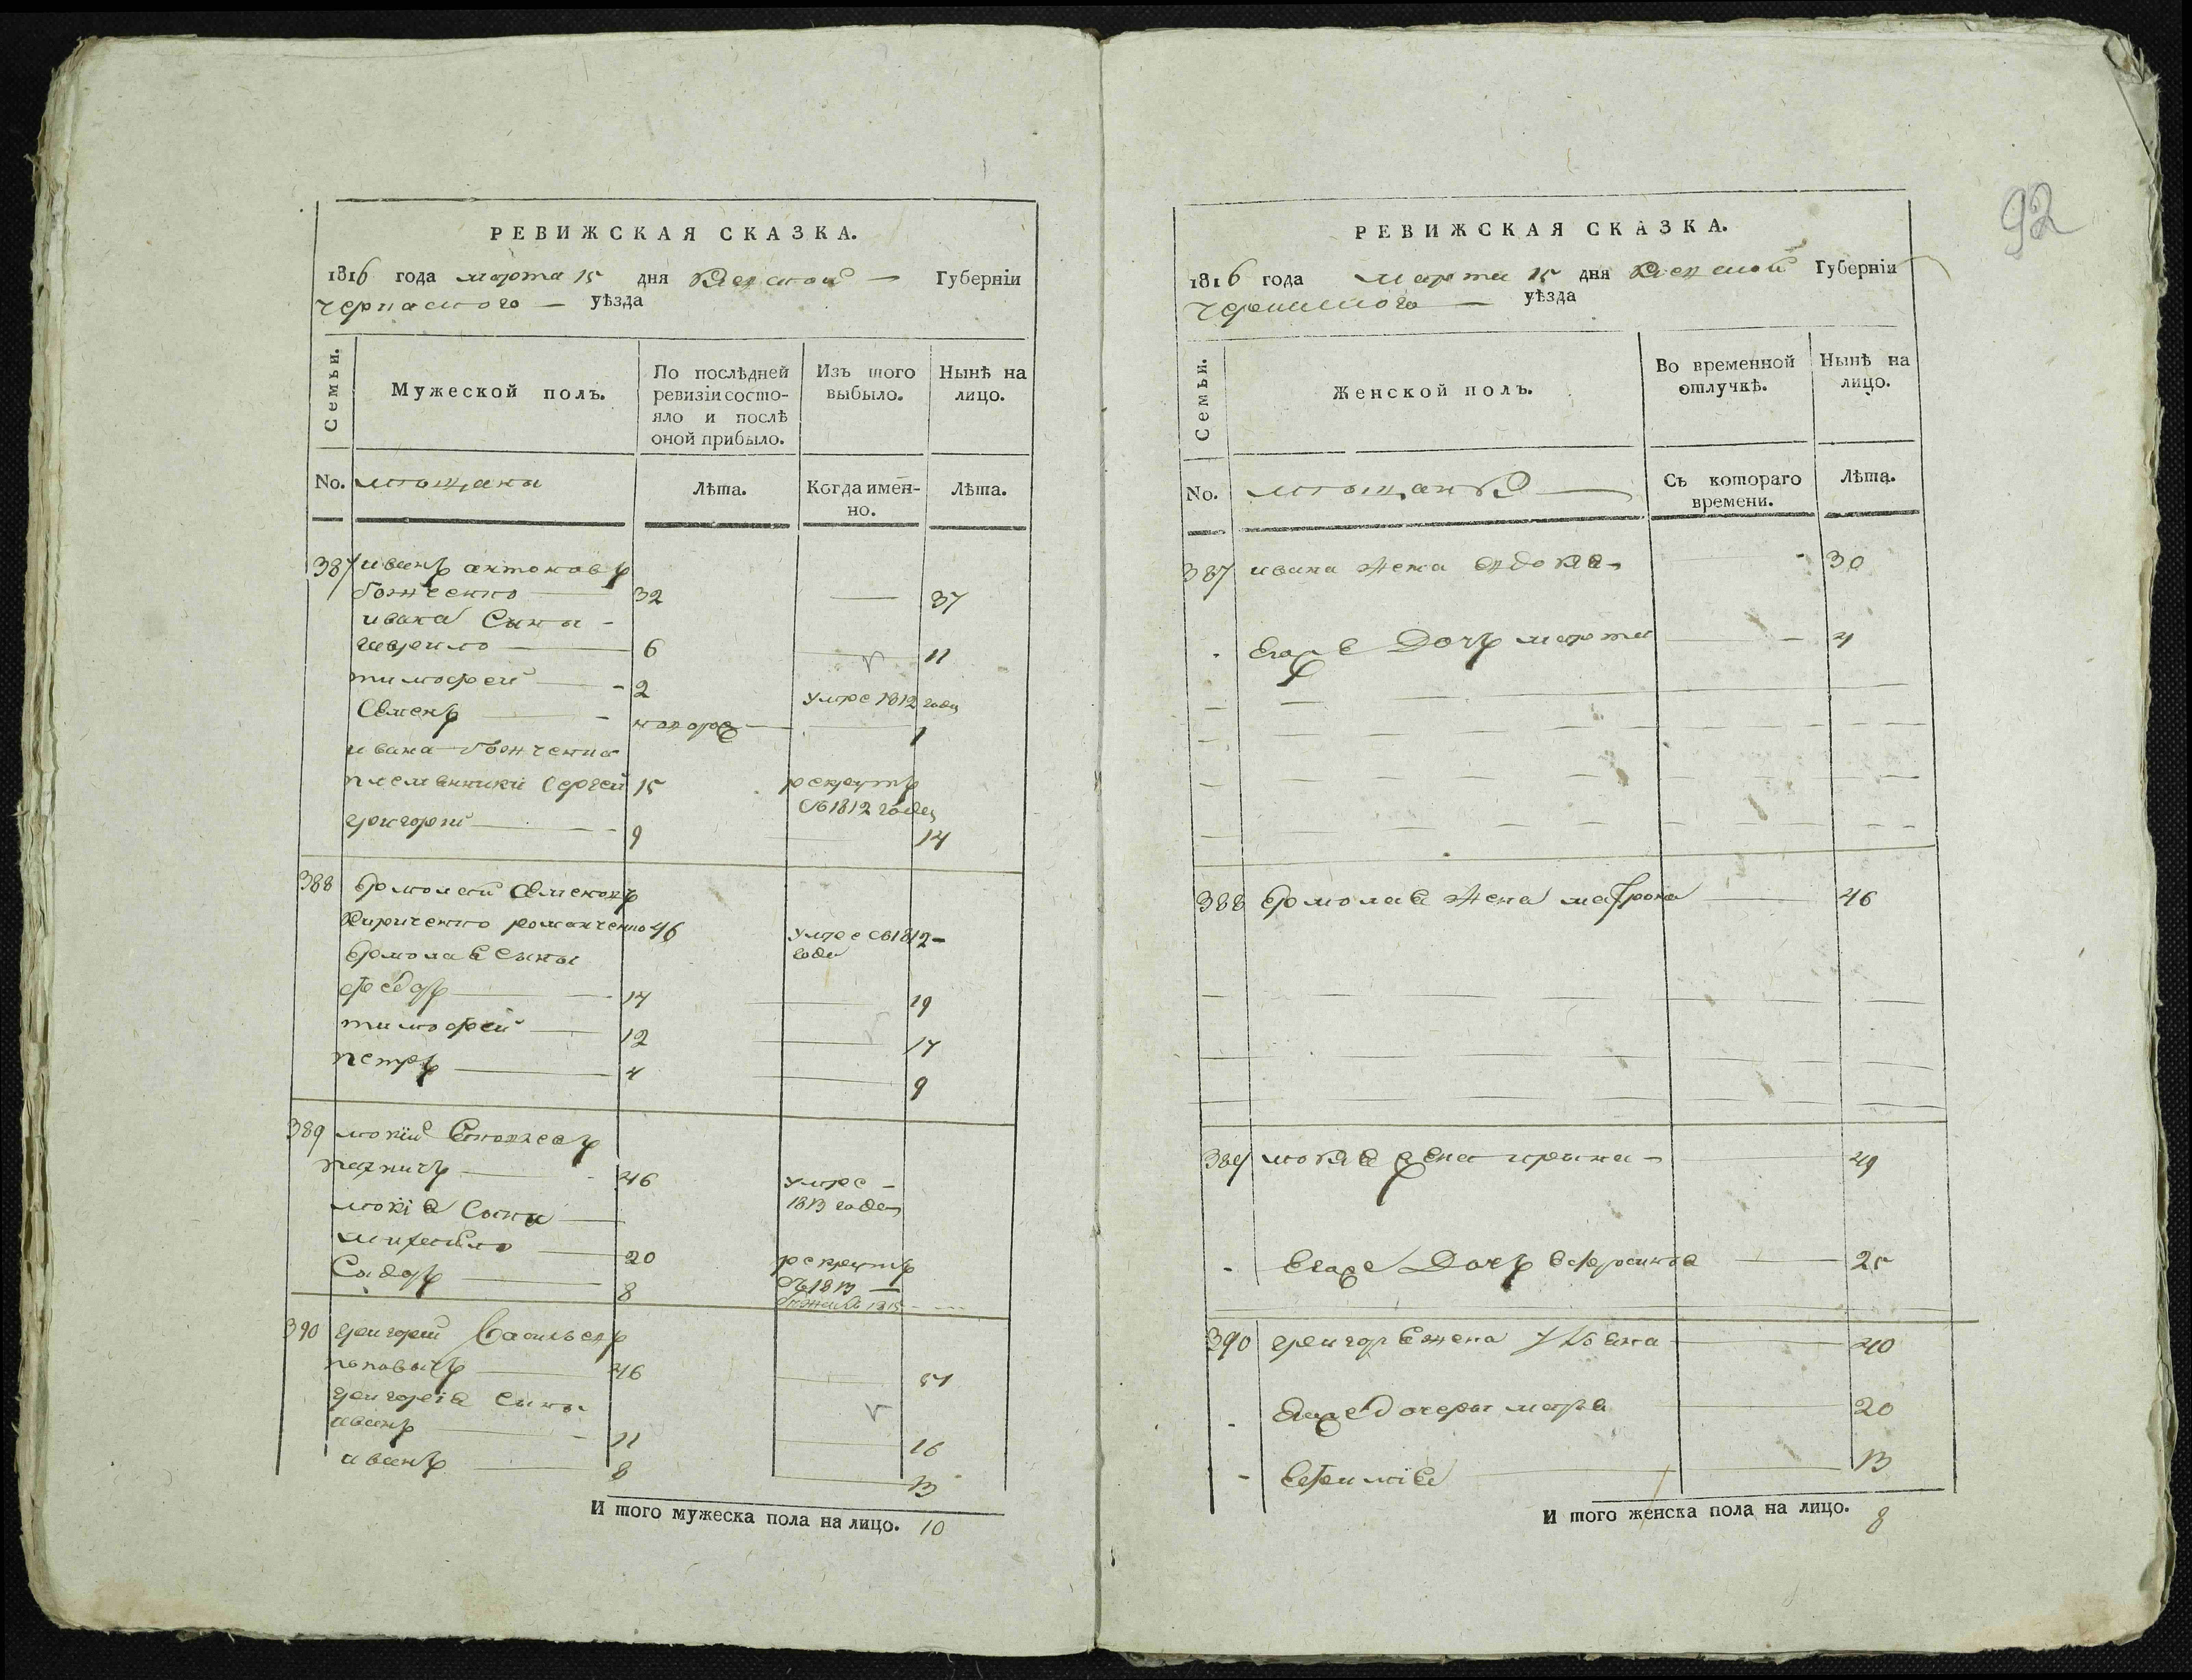 РЕВИЖСКАЯ СКАЗКА.
1816 года марта 15 дня Киевской Губерніи
черкаского уѣзда
Семьи.
Мужеской полъ.
По послѣдней ревизіи состояло и послѣ оной прибыло.
Изъ того выбыло.
Нынѣ на лицо.
No. мещаны
Лѣта.
Когда именно.
Лѣта.
387 иванъ антоновъ
божченко 32 37
ивана Сыны
гаврило 6 11
тимофей 2 умре 1812 года
Семенъ новорож 1
ивана божченка
племенники Сергей 15 рекрутъ
въ 1812 годе
григорий 9 14
388 Ермолай Семеновъ
Кириченко романченко 46 умре въ 1812
годе
Ермолаѣ сыны
федоръ 14 19
тимофей 12 17
петръ 4 9
389 мокій
46 умре
1813 годе
мокіѣ Сыны
михайло 20 рекрутъ
въ 1813
Сидоръ 8 1815
390 григорій Васильевъ
поповичъ 46 51
григоріѣ Сыны
иванъ 11 16
иванъ 8 13
И того мужеска пола на лицо. 10
92
РЕВИЖСКАЯ СКАЗКА.
1816 года марта 15 дня Киевской Губерніи
черкаского уѣзда
Семьи.
Женской полъ.
Во временной отлучкѣ.
Нынѣ на лицо.
No. мещанки
Съ котораго времени.
Лѣта.
387 ивана жена 30
Егоже Дочь марта 4
388 Ермолаѣ жена матрона 46
389 мокіѣ жена ирина 49
Егоже Дочь ефросинѣ 25
390 григорѣ жена улѣяна 40
Егоже дочеры 20
Ефимиѣ 13
И того женска пола на лицо. 8